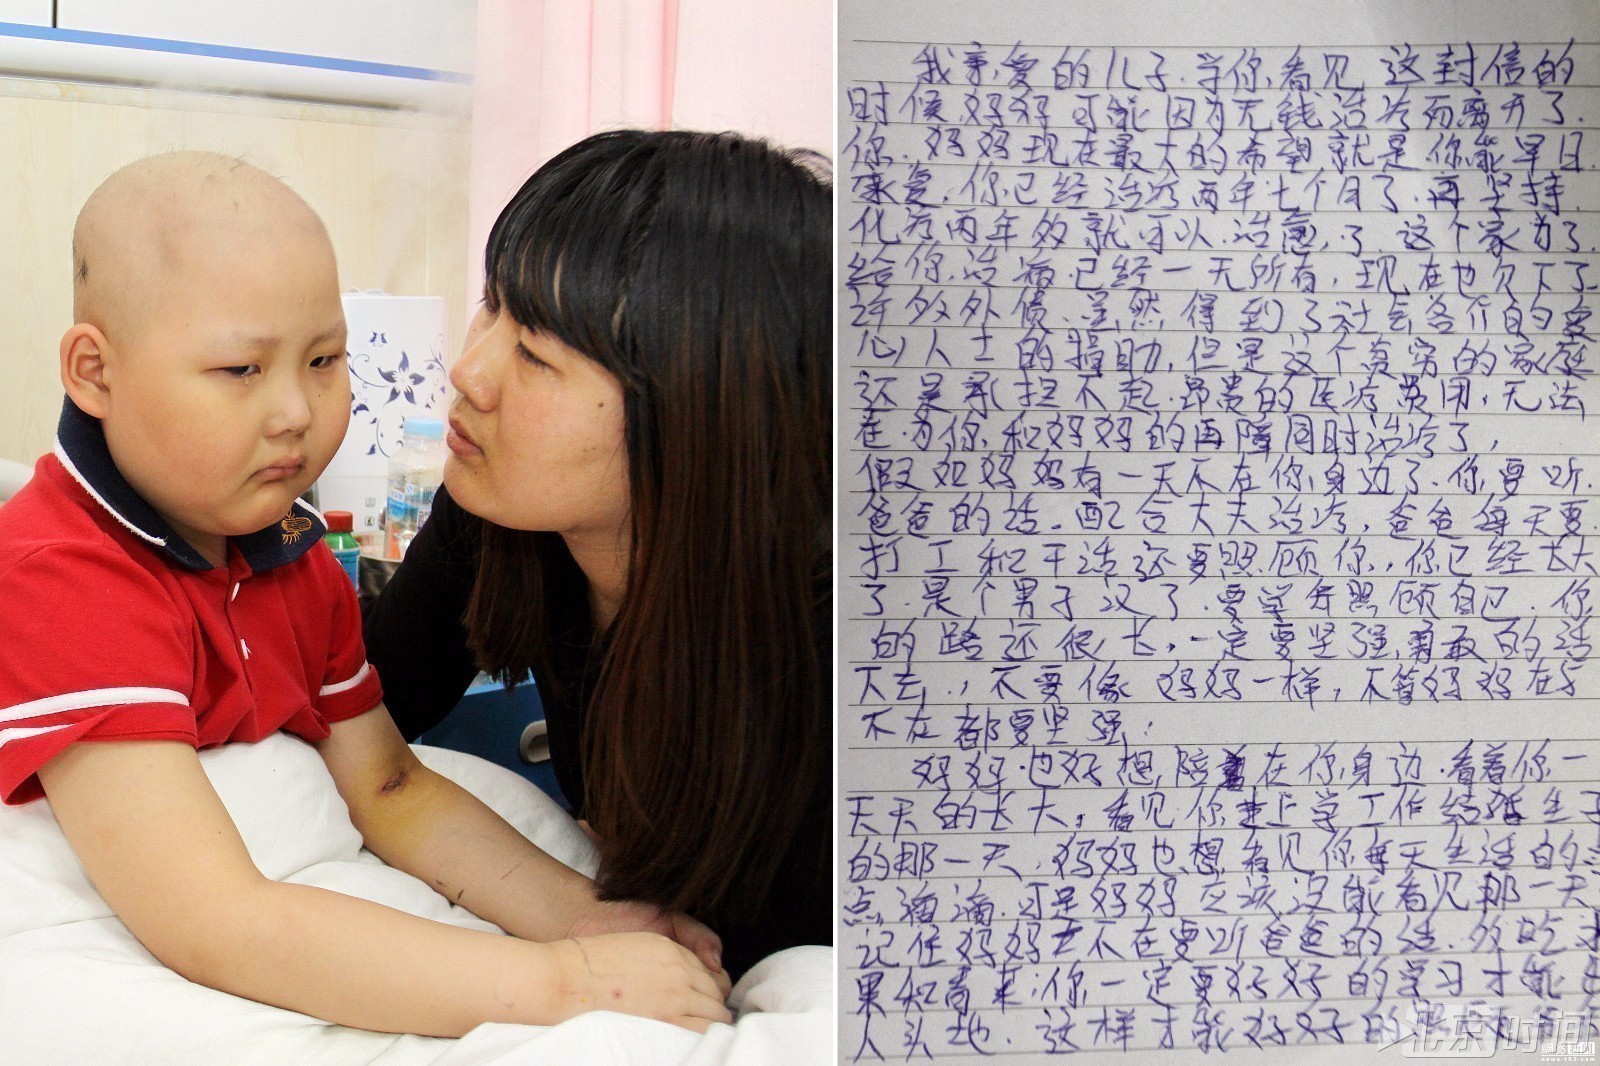 我亲爱的儿子.当你看见 这封信的
时候.妈妈可能因为无钱治疗而离开了.
你.妈妈现在最大的希望就是.你能早日.
康复.你已经治疗两年七个月了.再坚持.
化疗两年多就可以治愈,了.这个家为了.
给你治病.已经一无所有,现在也欠下了
外债.虽然得到了社会各介的爱
心人士的捐助,但是这个贫穷的家庭
还是承担不起.昂贵的医疗费用,无法
在为你和妈妈的再障同时治疗了,
假如妈妈有一天不在你身边了.你要听.
爸爸的话.配合大夫治疗,爸爸每天要.
打工和干活还要照顾你,你已经长大
了.是个男子汉了.要学会照顾自己.你
的路还很长,一定要坚强,勇敢的活
下去.,不要像 妈妈一样,不管妈妈在与
不在都要坚强;
妈妈也好想陪着在你身边.看着你一
天天的长大,看见你上学工作结婚生子
的那一天.妈妈也想看见你每天生活的点
点滴滴.可是妈妈应该没能看见那一天
记住妈妈不在要听爸爸的话.多吃水
果和青菜;你一定要好好的学习才能
人头地.这样才能好好的
北京时间
news.163.com